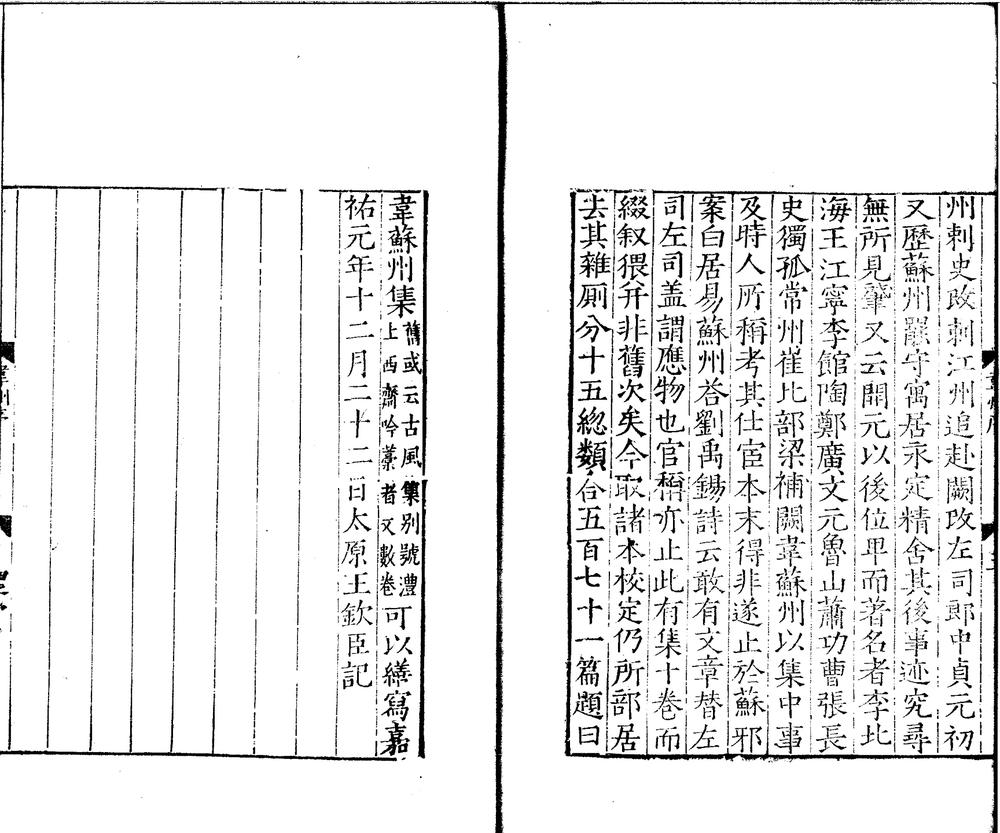 州刺史改刺江州追赴闕改左司郎中貞元初
又歷蘇州罷守寓居永定精舍其後事迹究尋
無所見肇又云開元以後位卑而著名者李北
海王江寧李館陶鄭廣文元魯山蕭功曹張長
史獨孤常州崔比部梁補闕韋蘇州以集中事
及時人所稱考其仕宦本末得非遂止於蘇邪
案白居易蘇州荅劉禹錫詩云敢有文章替左
司左司盖謂應物也官稱亦止此有集十卷而
綴叙猥并非舊次矣今取諸本校定仍所部居
去其雜厠分十五總類合五百七十一篇題曰
韋蘇州集舊或云古風集別號灃上西齋吟藁者又數卷可以繕寫嘉
祐元年十二月二十二日太原王欽臣記